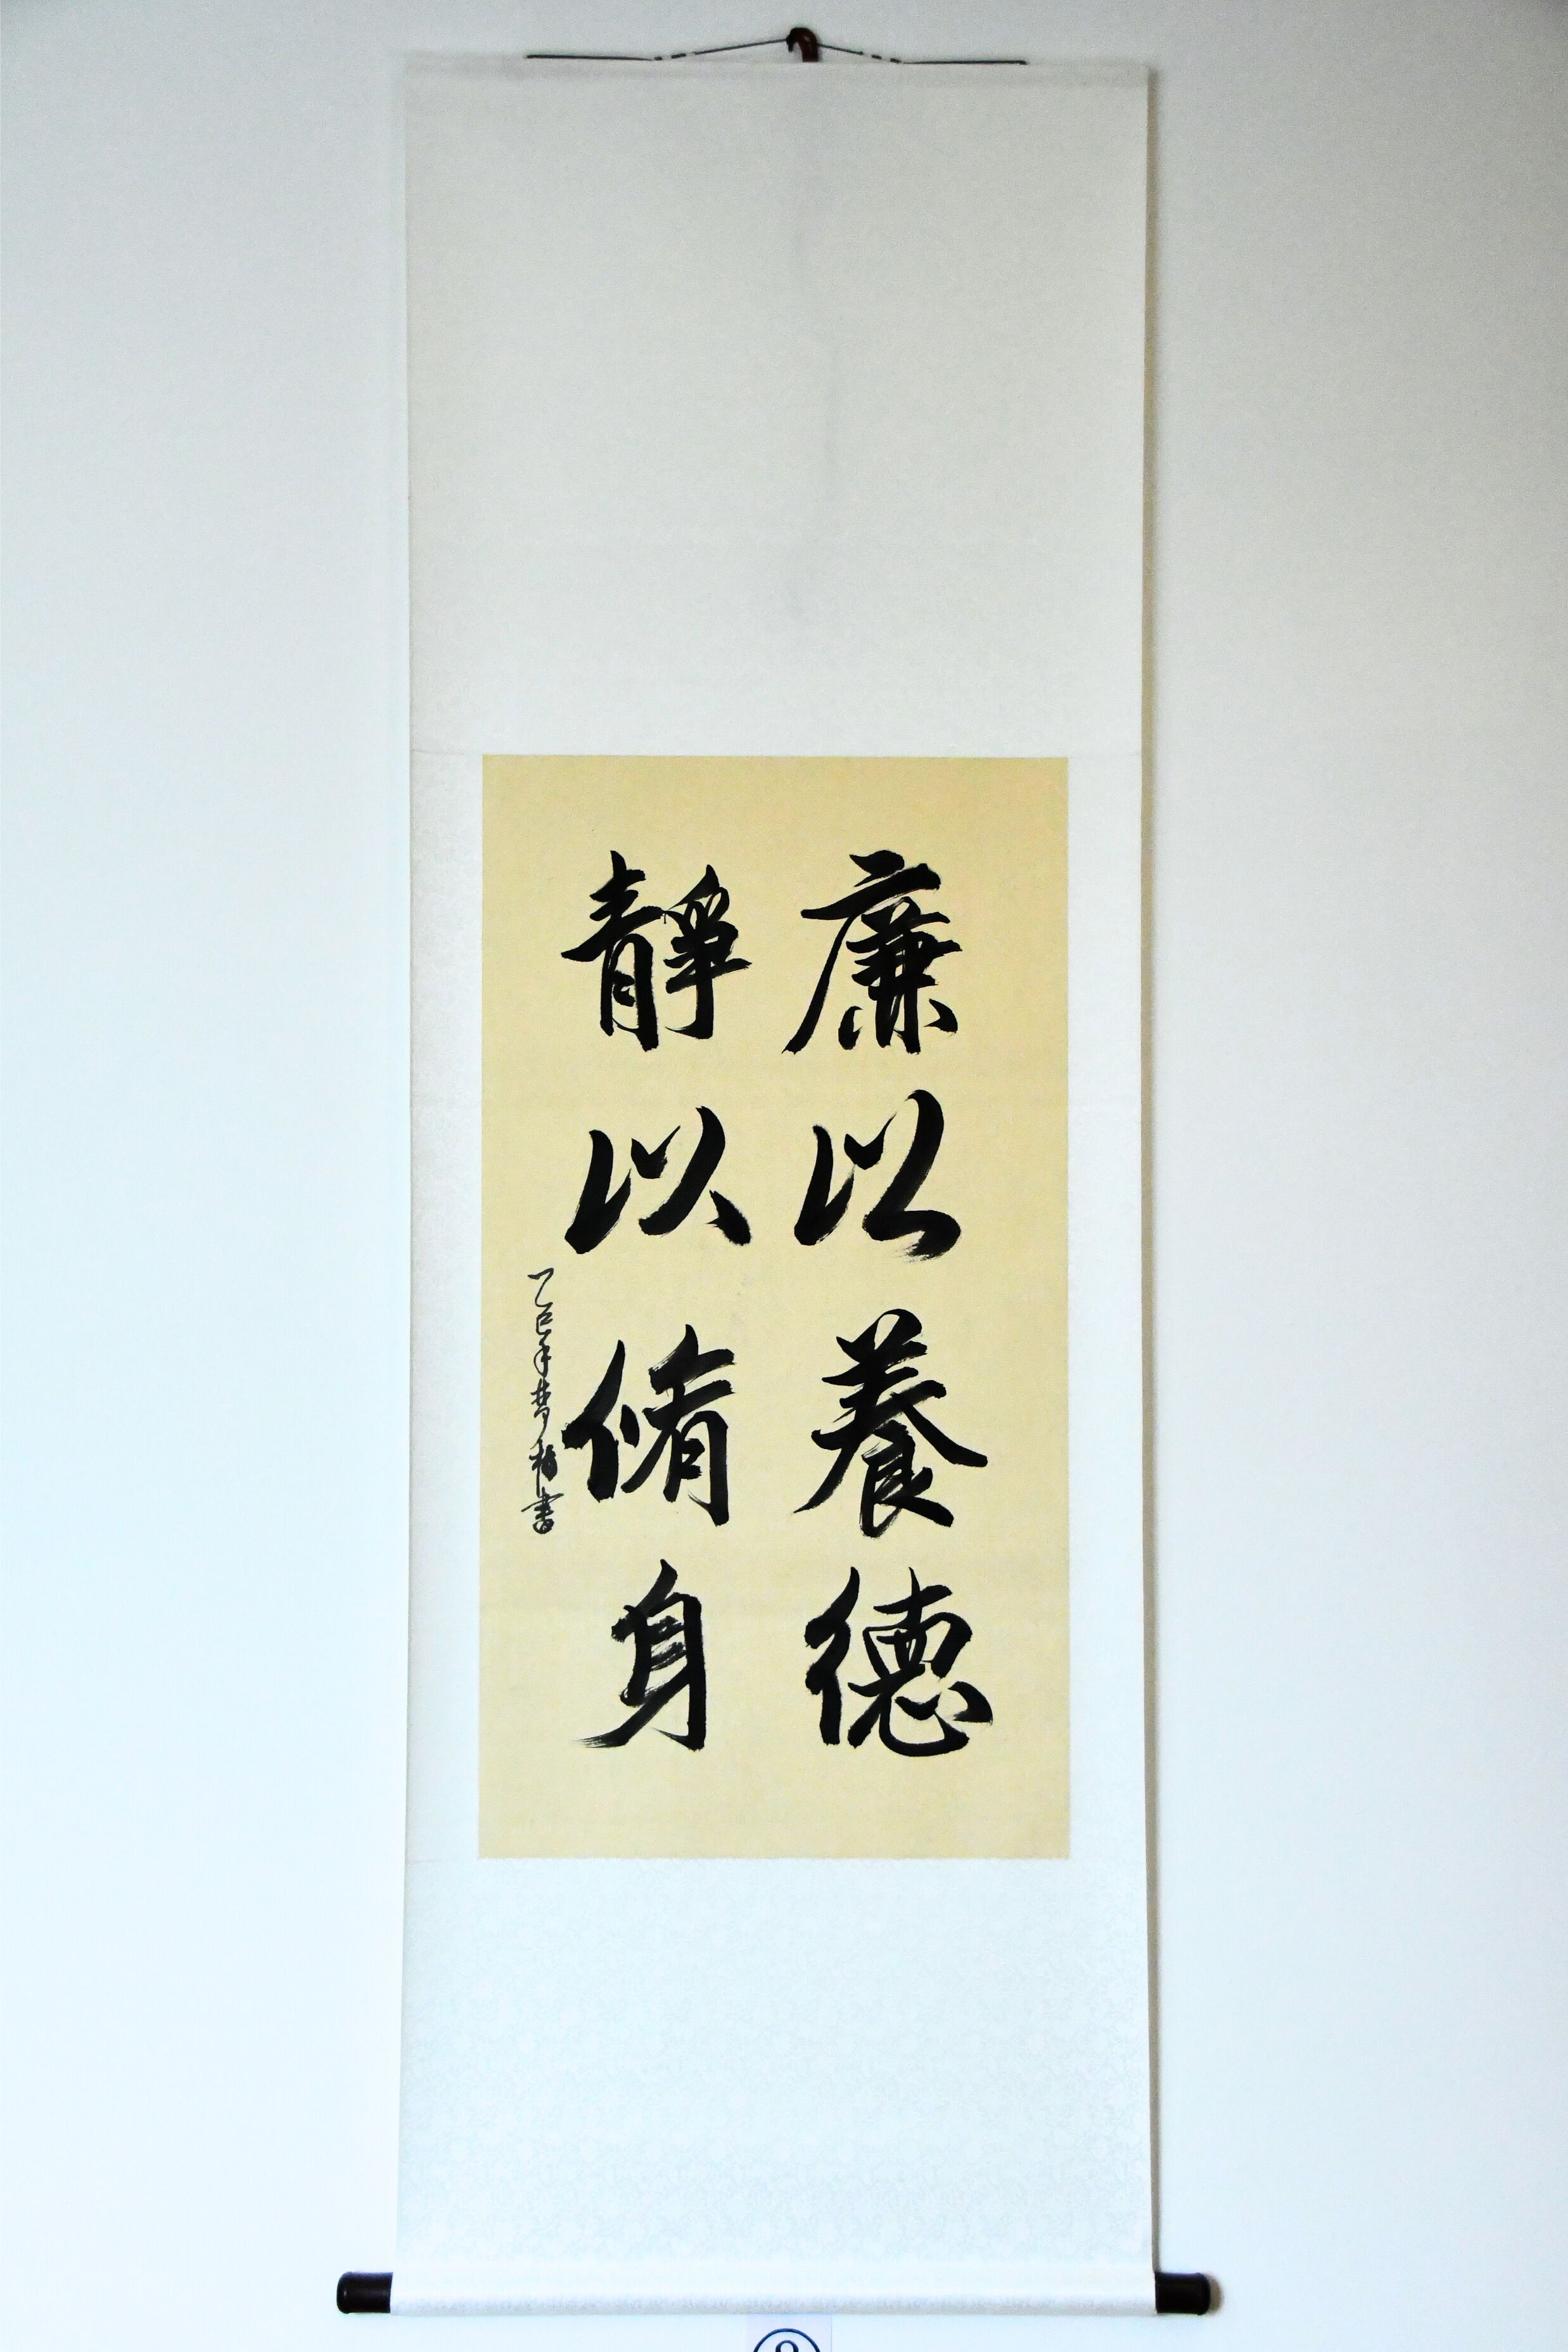 廉以養德
靜以脩身
乙巳年梦稻書